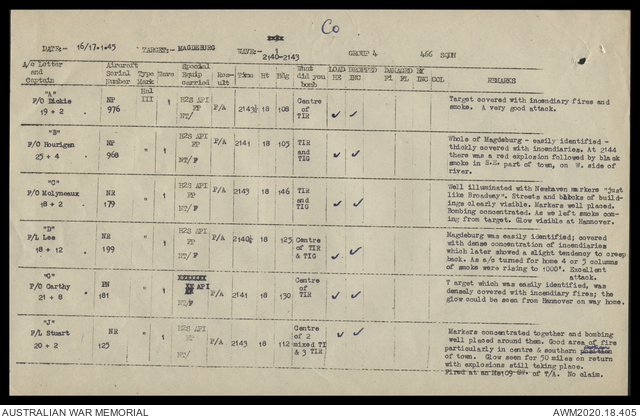 Co
DATE:- 16/17.1.45 TARGET:- MAGDEBURG WAVE:- 1 GROUP 4 466 SQDN
2140-2143
A/c Letter and Captain Aircraft Serial Number Type Mark Wave Special Equip carried Result Time Ht Hdg What did you bomb LOAD DROPPED HE INC DAMAGED BY FI FL INC COL REMARKS
"A" Hal III
F/O Dickie NP 976 1 H2S API FP NT/ P/A 2143½ 18 108 Centre of TIR
19 + 2
Target covered with incendiary fires and
smoke. A very good attack.
"B"
F/O Hourigan NP 968 " 1 H2S API FP NT/F P/A 2141 18 105 TIR and TIG
23 + 4
Whole of Magdeburg - easily identified -
thickly covered with incendiaries. At 2144
there was a red explosion followed by black
smoke in S.E. part of town, on W. side of
river.
"C"
F/O Molyneaux NR 179 " 1 H2S API FP NT/F P/A 2143 18 146 TIR and TIG
18 + 2
Well illuminated with Newhaven markers "just
like Broadway". Streets and blocks of buil-
dings clearly visible. Markers well placed.
Bombing concentrated. As we left smoke com-
ing from target. Glow visible at Hannover.
"D"
F/L Lee NR 199 " 1 H2S API FP NT/F P/A 2140½ 18 125 Centre of TIR & TIG
18 + 12
Magdeburg was easily identified; covered
with dense concentration of incendiaries
which later showed a slight tendency to creep
back. As a/c turned for home 4 or 5 columns
of smoke were rising to 1000'. Excellent
attack.
"G"
F/O Carthy PN 181 " 1 API NT/F P/A 2141 18 130 Centre of TIR
21 + 8
Target which was easily identified, was
densely covered with incendiary fires; the
glow could be seen from Hannover on way home.
"J"
F/L Stuart NR 125 " 1 H2S API FP NT/ P/A 2143 18 112 Centre of 2 mixed TI & 3 TIR
20 + 2
Markers concentrated together and bombing
well placed around them. Good area of fire
particularly in centre & southern
of town. Glow seen for 50 miles on return
with explosions still taking place.
Fired at an Me109 of T/A. No claim.
AUSTRALIAN WAR MEMORIAL
AWM2020.18.405